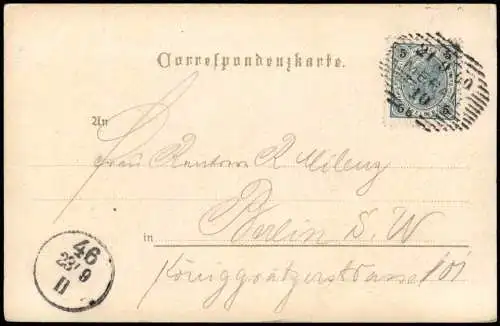 Correspondenzkarte.
An
Frau Rentiere R Milenz
in Berlin S. W
Königgrätzerstrasse 101
5 5
5 5
46
23 9
II